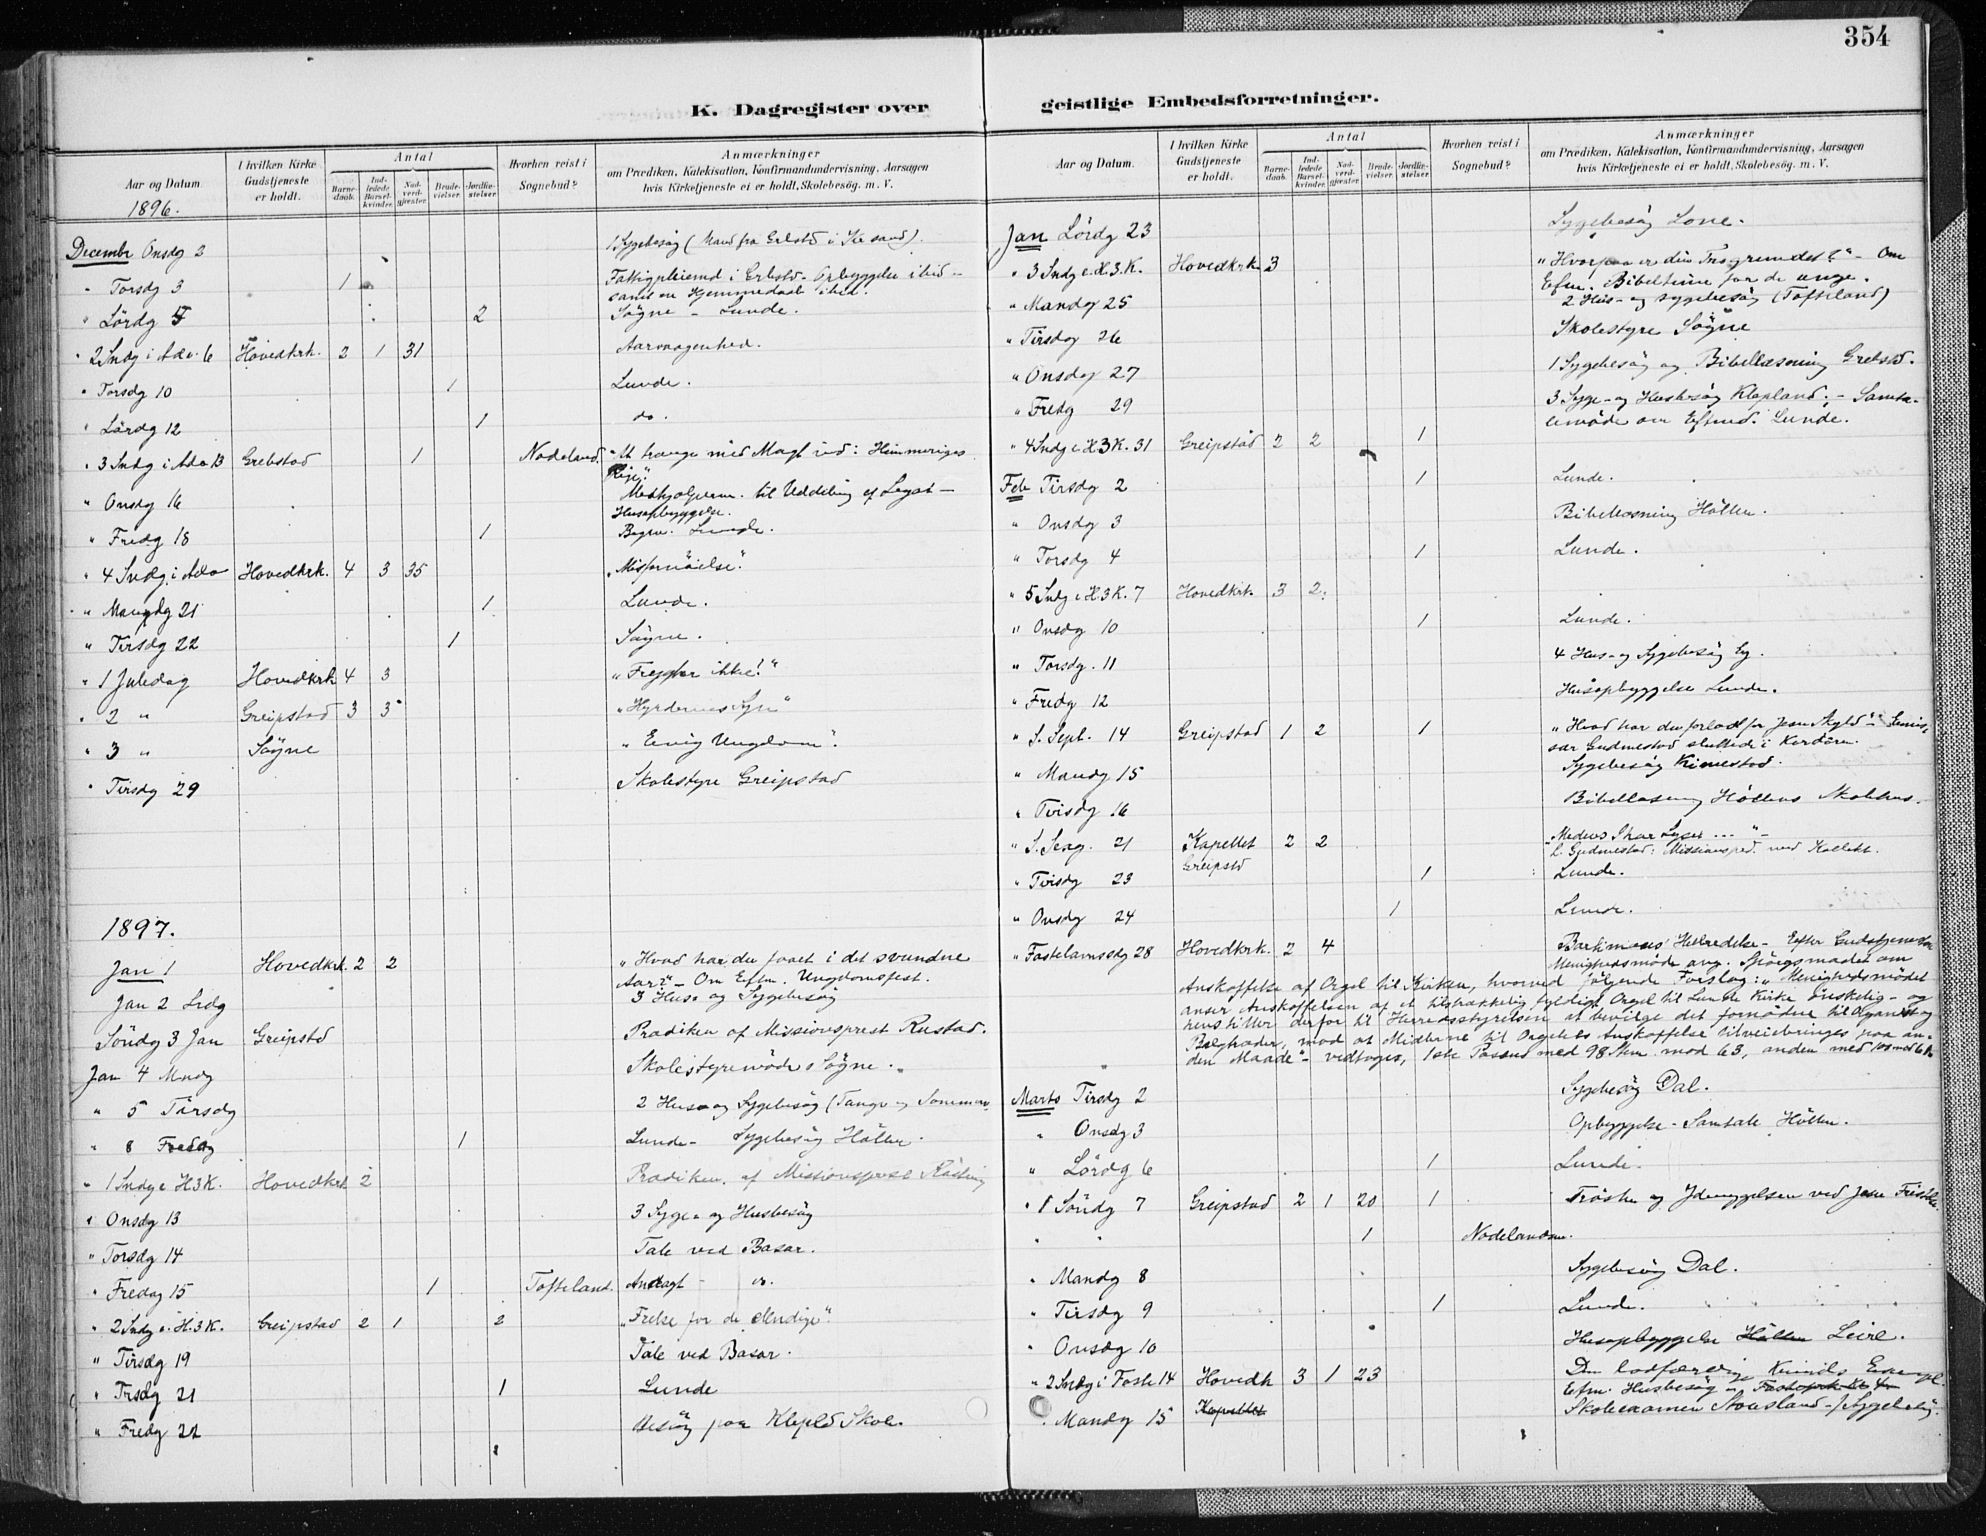 354
K. Dagregister over geistlige Embedsforretninger.
Aar og Datum
I hvilken Kirke Gudstjeneste er holdt.
Antal
Barnedaab.
Indledede Barselkvinder.
Nadverdgjæster.
Brudevielser.
Jordfæstelser
Hvorhen reist i Sognebud?
Anmærkninger
om Prædiken, Katekisation, Konfirmandundervisning, Aarsagen
hvis Kirketjeneste ei er holdt, Skolebesøg. m. V.
1896.
Decembr Onsdg 2 1 Sygebesøg (Mand fra
" Torsdg 3 1 Fattigpleiemd i Grebstd. Opbyggelse ibid -
samt en Hjemmedaab ibid.
" Lördg 5 2 Søgne - Lunde.
" 2 Sndg i Adv. 6 Hovedkrk. 2 1 31 Aarvaagenhed.
" Torsdg 10 1 Lunde.
" Lördg 12 1 do.
" 3 Sndg i Adv. 13 Grebstad 1 Nodeland. "At trænge med Magt ind i Himmeriges
Rige"
" Onsdg 16 Medhjælperm. til Uddeling af Legat -
Husopbyggelse.
" Fredg 18 1 Begrv. Lunde.
" 4 Sndg i Adv Hovedkrk. 4 3 35 "Misfornöielse".
" Mandg 21 1 Lunde.
" Tirsdg 22 1 Søgne.
" 1 Juledag Hovedkrk 4 3 "Frygter ikke!"
" 2 " Greipstad 3 3 "Hyrdernes Syn"
" 3 " Søgne "Evig Ungdom".
" Tirsdg 29 Skolestyre Greipstad
1897.
Jan 1 Hovedkrk. 2 2 "Hvad har du faaet i det svundne
Aar?" - Om Eftm. Ungdomsfest.
Jan 2 Lrdg 3 Hus- og Sygebesøg
Söndg 3 Jan Greipstd Prædiken af Missionsprest Rustad.
Jan 4 Mndg Skolestyremöde Søgne.
" 5 Tirsdg 2 Hus og Sygebesøg (Tange og
" 8 Fredag 1 Lunde - Sygebesøg Hölle.
" 1 Sndg e H3K. Hovedkrk 2 Prædiken af Missionsprest
" Onsdg 13 3 Syge- og Husbesøg
" Torsdg 14 Tale ved Basar.
" Fredag 15 1 Tofteland. Andagt -
" 2 Sndg e. H.3K. Greipstad 2 1 2 "Frelse for de elendige".
" Tirsdg 19 Tale ved Basar.
" Trsdg 21 1 Lunde
" Fredg 22 Besøg paa Klepld Skole.
Aar og Datum.
I hvilken Kirke Gudstjeneste er holdt.
Antal
Barnedaab.
Indledede Barselkvinder.
Nadverdgjæster.
Brudevielser.
Jordfæstelser
Hvorhen reist i Sognebud?
Anmærkninger
om Prædiken, Katekisation, Konfirmandundervisning, Aarsagen
hvis Kirketjeneste ei er holdt, Skolebesøg. m. V.
Jan Lördg 23 Sygebesøg Lone.
" 3 Sndg e. H.3.K. Hovedkrk. 3 "Hvorpaa er din Tro grundet?" - Om
Efm. Bibeltime for de unge.
" Mandg 25 2 Hus- og Sygebesøg (Tofteland)
" Tirsdag 26 Skolestyre Søgne
" Onsdag 27 1 Sygebesøg og Bibellæsning Grebstd.
" Fredg 29 3 Syge- og Husbesøg Klepland. - Samta-
lemöde om Eftmd. Lunde.
" 4 Sndg e H3K. 31 Greipstad 2 2 1
Feb Tirsdg 2 1 Lunde.
" Onsdg 3 Bibellæsning Höllen.
" Torsdg 4 1 Lunde.
" 5 Sndg e H.3K. 7 Hovedkrk. 3 2
" Onsdg 10 1 Lunde.
" Torsdg. 11 4 Hus- og Sygebesøg Eg.
" Fredg 12 Husopbyggelse Lunde.
" S. Sept. 14 Greipstad 1 2 1 "Hvad har du forladt for Jesu Skyld" - Emis-
sær Gudmestad sluttede i Kordören.
" Mandg 15 Sygebesøg Kimestad.
" Tirsdg 16 Bibellæsning Höllens Skolehus.
" S. Sexg. 21 Kapellet 2 2 "Medens I har Lyset ..." -
Greipstd E. Gudmestad: Missionspræd. med Kollekt.
" Tirsdg 23 1 Lunde.
" Onsdg 24 1 Lunde.
" Fastelavnssdg 28 Hovedkrk. 2 4 Bartimæus' Helbredelse - Efter Gudstjenesten
Menighedsmöde ang. Spörgsmaalet om
Anskaffelse af Orgel til Kirken, hvorved følgende Forslag: "Menighedsmödet
anser Anskaffelsen af et tilstrækkelig fyldigt Orgel til Lunde Kirke ønskelig - og
henstiller derfor til Herredsstyrelsen at bevilge det fornødne til Organist og
Bælgtræder, mod at Midlerne til Orgelets Anskaffelse tilveiebringes paa an-
den Maade" - vedtoges, 1ste Passus med 98 Stm. mod 63, anden med 100 mod
Marts Tirsdg 2 Sygebesøg Dal.
" Onsdg 3 Opbyggelse - Samtale Höllen.
" Lördg 6 1 Lunde.
" 1 Söndg 7 Greipstad 2 1 20 1 Trøsten og Ydmygelsen ved Jesu Fristelse.
" " 1 Nodelandsm.
" Mandg 8 Sygebesøg Dal.
" Tirsdg 9 1 Lunde.
" Onsdg 10 Husopbyggelse Höllen Leire.
" 2 Sndg i Faste 14 Hovedk 3 1 23 Den
Efm. Husbesøg
" Mandg 15 Kapellet Skoleexamen Stousland - 1 Sygebesøg.